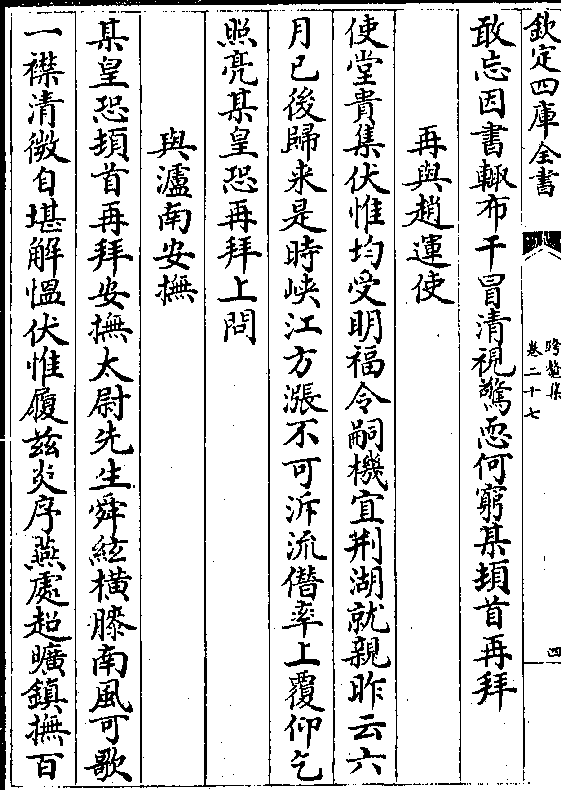 欽定四庫全書
跨鼇集
卷二十七
四
敢忘因書輙布干冒清視驚恧何窮某頓首再拜
再與趙運使
使堂貴集伏惟均受明福令嗣機宜荆湖就親昨云六
月已後歸来是時峽江方漲不可泝流僣率上覆仰乞
照亮某皇恐再拜上問
與瀘南安撫
某皇恐頓首再拜安撫太尉先生舜絃横膝南風可歌
一襟清微自堪解愠伏惟履兹炎序燕處超曠鎮撫百